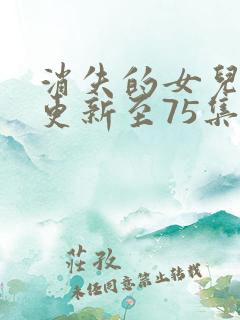 消失的女兒
更新至75集
莊孜
未任同意禁止转载